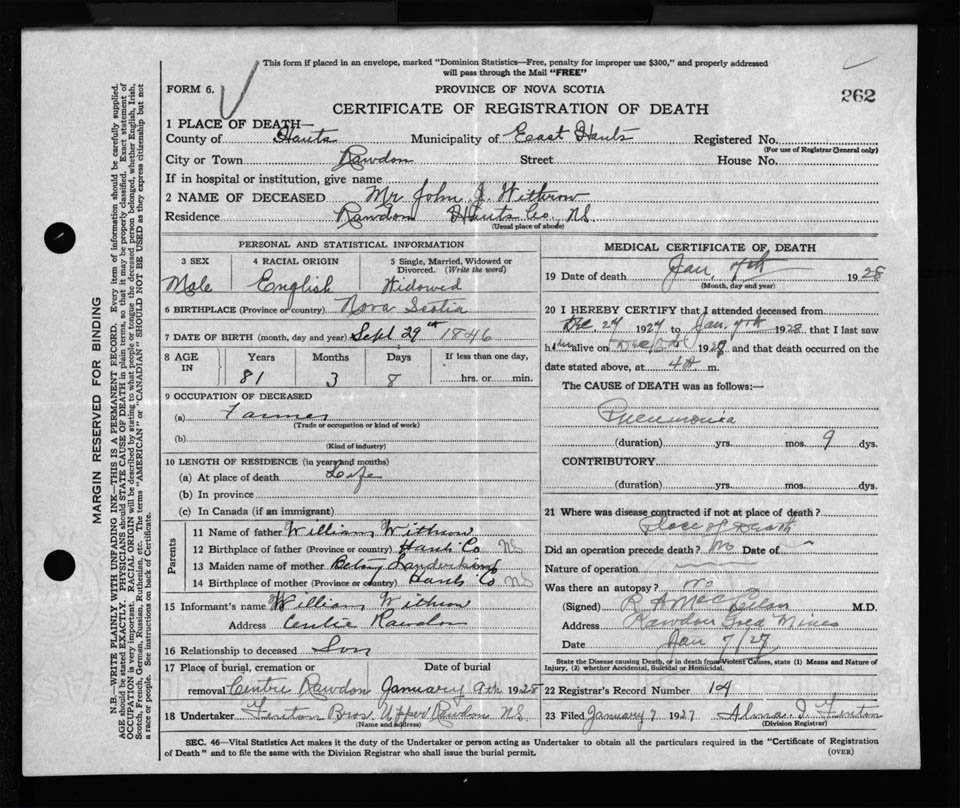 This form if placed in an envelope, marked "Dominion Statistics—Free, penalty for improper use $300," and properly addressed
will pass through the Mail "FREE"
FORM 6.
PROVINCE OF NOVA SCOTIA
262
CERTIFICATE OF REGISTRATION OF DEATH
1 PLACE OF DEATH—
County of Hants Municipality of East Hants Registered No.
(For use of Registrar General only)
City or Town Rawdon Street House No.
If in hospital or institution, give name
2 NAME OF DECEASED Mr John J. Withrow
Residence Rawdon Hants Co. N.S.
(Usual place of abode)
MARGIN RESERVED FOR BINDING
N.B.—WRITE PLAINLY WITH UNFADING INK—THIS IS A PERMANENT RECORD. Every item of information should be carefully supplied.
AGE should be stated EXACTLY. PHYSICIANS should STATE CAUSE OF DEATH in plain terms, so that it may be properly classified. Exact statement of
OCCUPATION is very important. RACIAL ORIGIN will be described by stating to what people or tongue the deceased person belonged, whether English, Irish,
Scotch, French, German, Russian, Ruthenian, etc. The terms "AMERICAN" or "CANADIAN" SHOULD NOT BE USED as they express citizenship but not
a race or people. See instructions on back of Certificate.
PERSONAL AND STATISTICAL INFORMATION
3 SEX
Male
4 RACIAL ORIGIN
English
5 Single, Married, Widowed or
Divorced. (Write the word)
Widowed
6 BIRTHPLACE (Province or country) Nova Scotia
7 DATE OF BIRTH (month, day and year) Sept 29th 1846
8 AGE
IN
Years
81
Months
3
Days
8
If less than one day,
hrs. or min.
9 OCCUPATION OF DECEASED
(a) Farmer
(Trade or occupation or kind of work)
(b)
(Kind of industry)
10 LENGTH OF RESIDENCE (in years and months)
(a) At place of death Life
(b) In province
(c) In Canada (if an immigrant)
Parents
11 Name of father William Withrow
12 Birthplace of father (Province or country) Hants Co NS
13 Maiden name of mother Betsy
14 Birthplace of mother (Province or country) Hants Co NS
15 Informant's name William Withrow
Address Centre Rawdon
16 Relationship to deceased Son
17 Place of burial, cremation or
Date of burial
removal Centre Rawdon January 9th 1928
18 Undertaker Fenton Bros. Upper Rawdon N.S.
(Name and address)
MEDICAL CERTIFICATE OF DEATH
19 Date of death Jan. 7th 1928
(Month, day and year)
20 I HEREBY CERTIFY that I attended deceased from
Dec 27 1927 to Jan. 7th 1928 that I last saw
him alive on Dec 1927 and that death occurred on the
date stated above, at m.
The CAUSE of DEATH was as follows:—
Pneumonia
(duration) yrs. mos. 9 dys.
CONTRIBUTORY
(duration) yrs. mos. dys.
21 Where was disease contracted if not at place of death?
Place of Death
Did an operation precede death? No Date of
Nature of operation
Was there an autopsy? no
(Signed) R A McClellan M.D.
Address Rawdon Gold Mines
Date Jan 7/27
State the Disease causing Death, or in death from Violent Causes, state (1) Means and Nature of
Injury, (2) whether Accidental, Suicidal or Homicidal.
22 Registrar's Record Number 14
23 Filed January 7 1927 Alma J. Fenton
(Division Registrar)
SEC. 46—Vital Statistics Act makes it the duty of the Undertaker or person acting as Undertaker to obtain all the particulars required in the "Certificate of Registration
of Death" and to file the same with the Division Registrar who shall issue the burial permit.
(OVER)